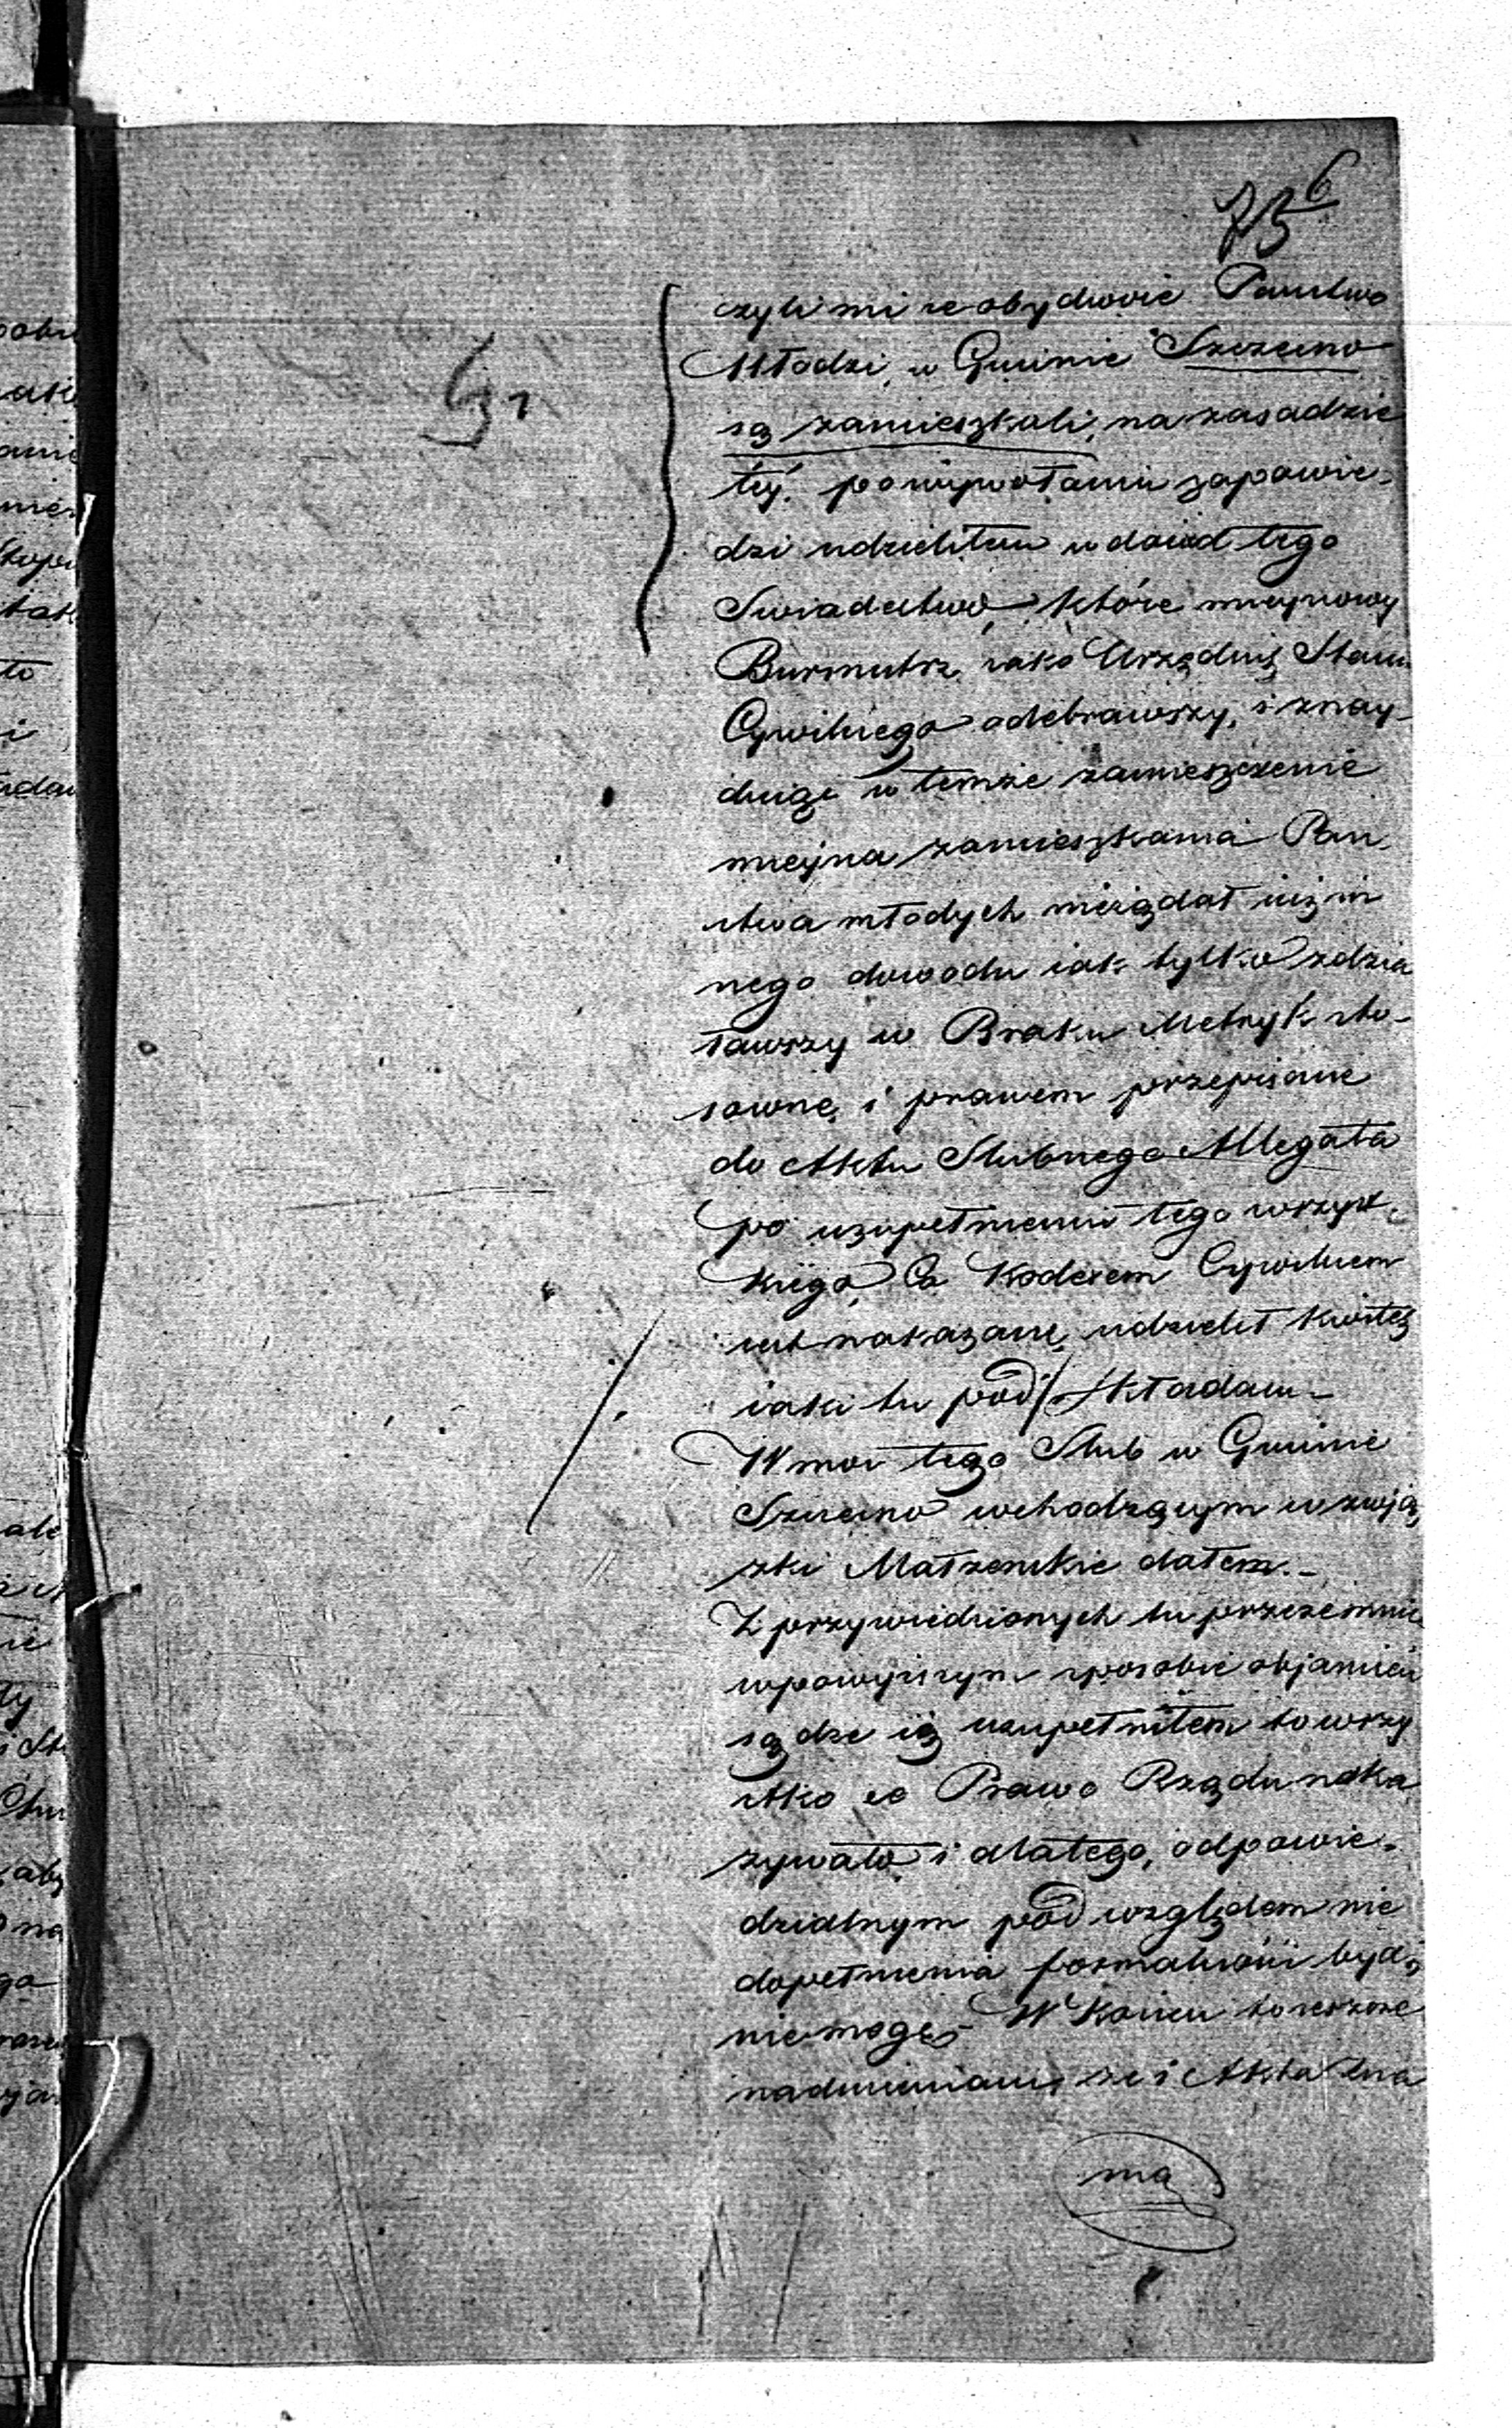 75 6
czyli mi że obydwoie Państwo
Młodzi, w Gminie Szczecino
są zamieszkali, na zasadzie
téy. po wywołaniu zapowie-
dzi udzieliłem w dowód tego
Swiadectwo, które
Burmistrz iako Urzędnik Stanu
Cywilnego odebrawszy, i znay-
duiąc w temże zamieszczenie
zamieszkania Pań
stwa młodych nieżądał in
nego dowodu iak tylko zdzia
ławszy w Braku Metryk sto-
sowne, i prawem przepisane
do Aktu Slubnego Allegata
po uzupełnieniu tego wszyst-
kiego, Co Kodexem Cywilnem
iest nakazane, udzielił kwitek
iaki tu pod / składam -
W moc tego Slub w Gminie
Szczecino wchodzącym w zwią
zki Małżenskie dałem. -
Z przywiedzionych tu przezemnie
wpowyższym sposobie objaśnień
sądzę iż uzupełniłem to wszy
stko co Prawo Rządu naka
zywało i dlatego, odpowie-
dzialnym pod względem nie
dopełnienia formalności bydź
niemogę - W Końcu to ieszcze
nadmieniam, że i Akta Zna